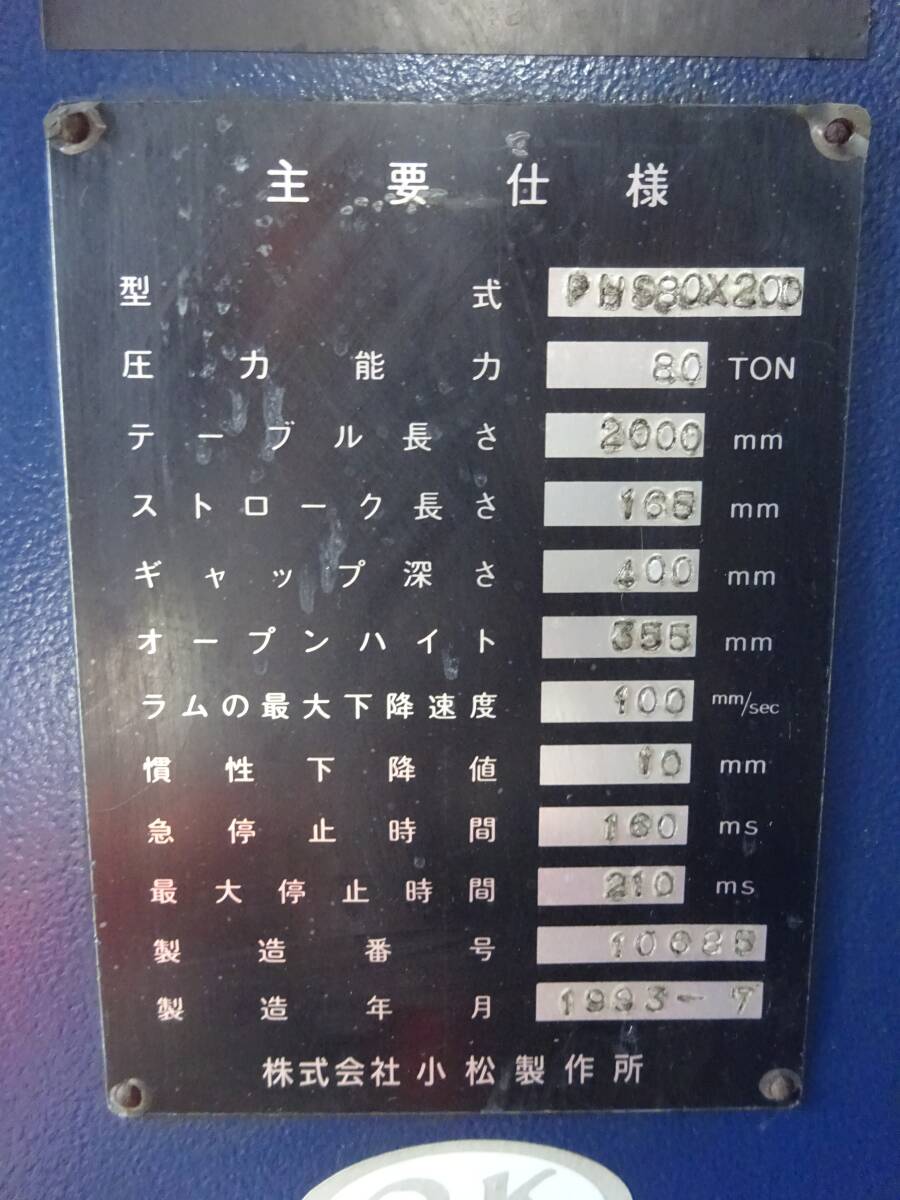 主要仕様
型式 PHS80X200
圧力能力 80 TON
テーブル長さ 2000 mm
ストローク長さ 165 mm
ギャップ深さ 400 mm
オープンハイト 355 mm
ラムの最大下降速度 100 mm/sec
慣性下降値 10 mm
急停止時間 160 ms
最大停止時間 210 ms
製造番号 10685
製造年月 1993-7
株式会社小松製作所